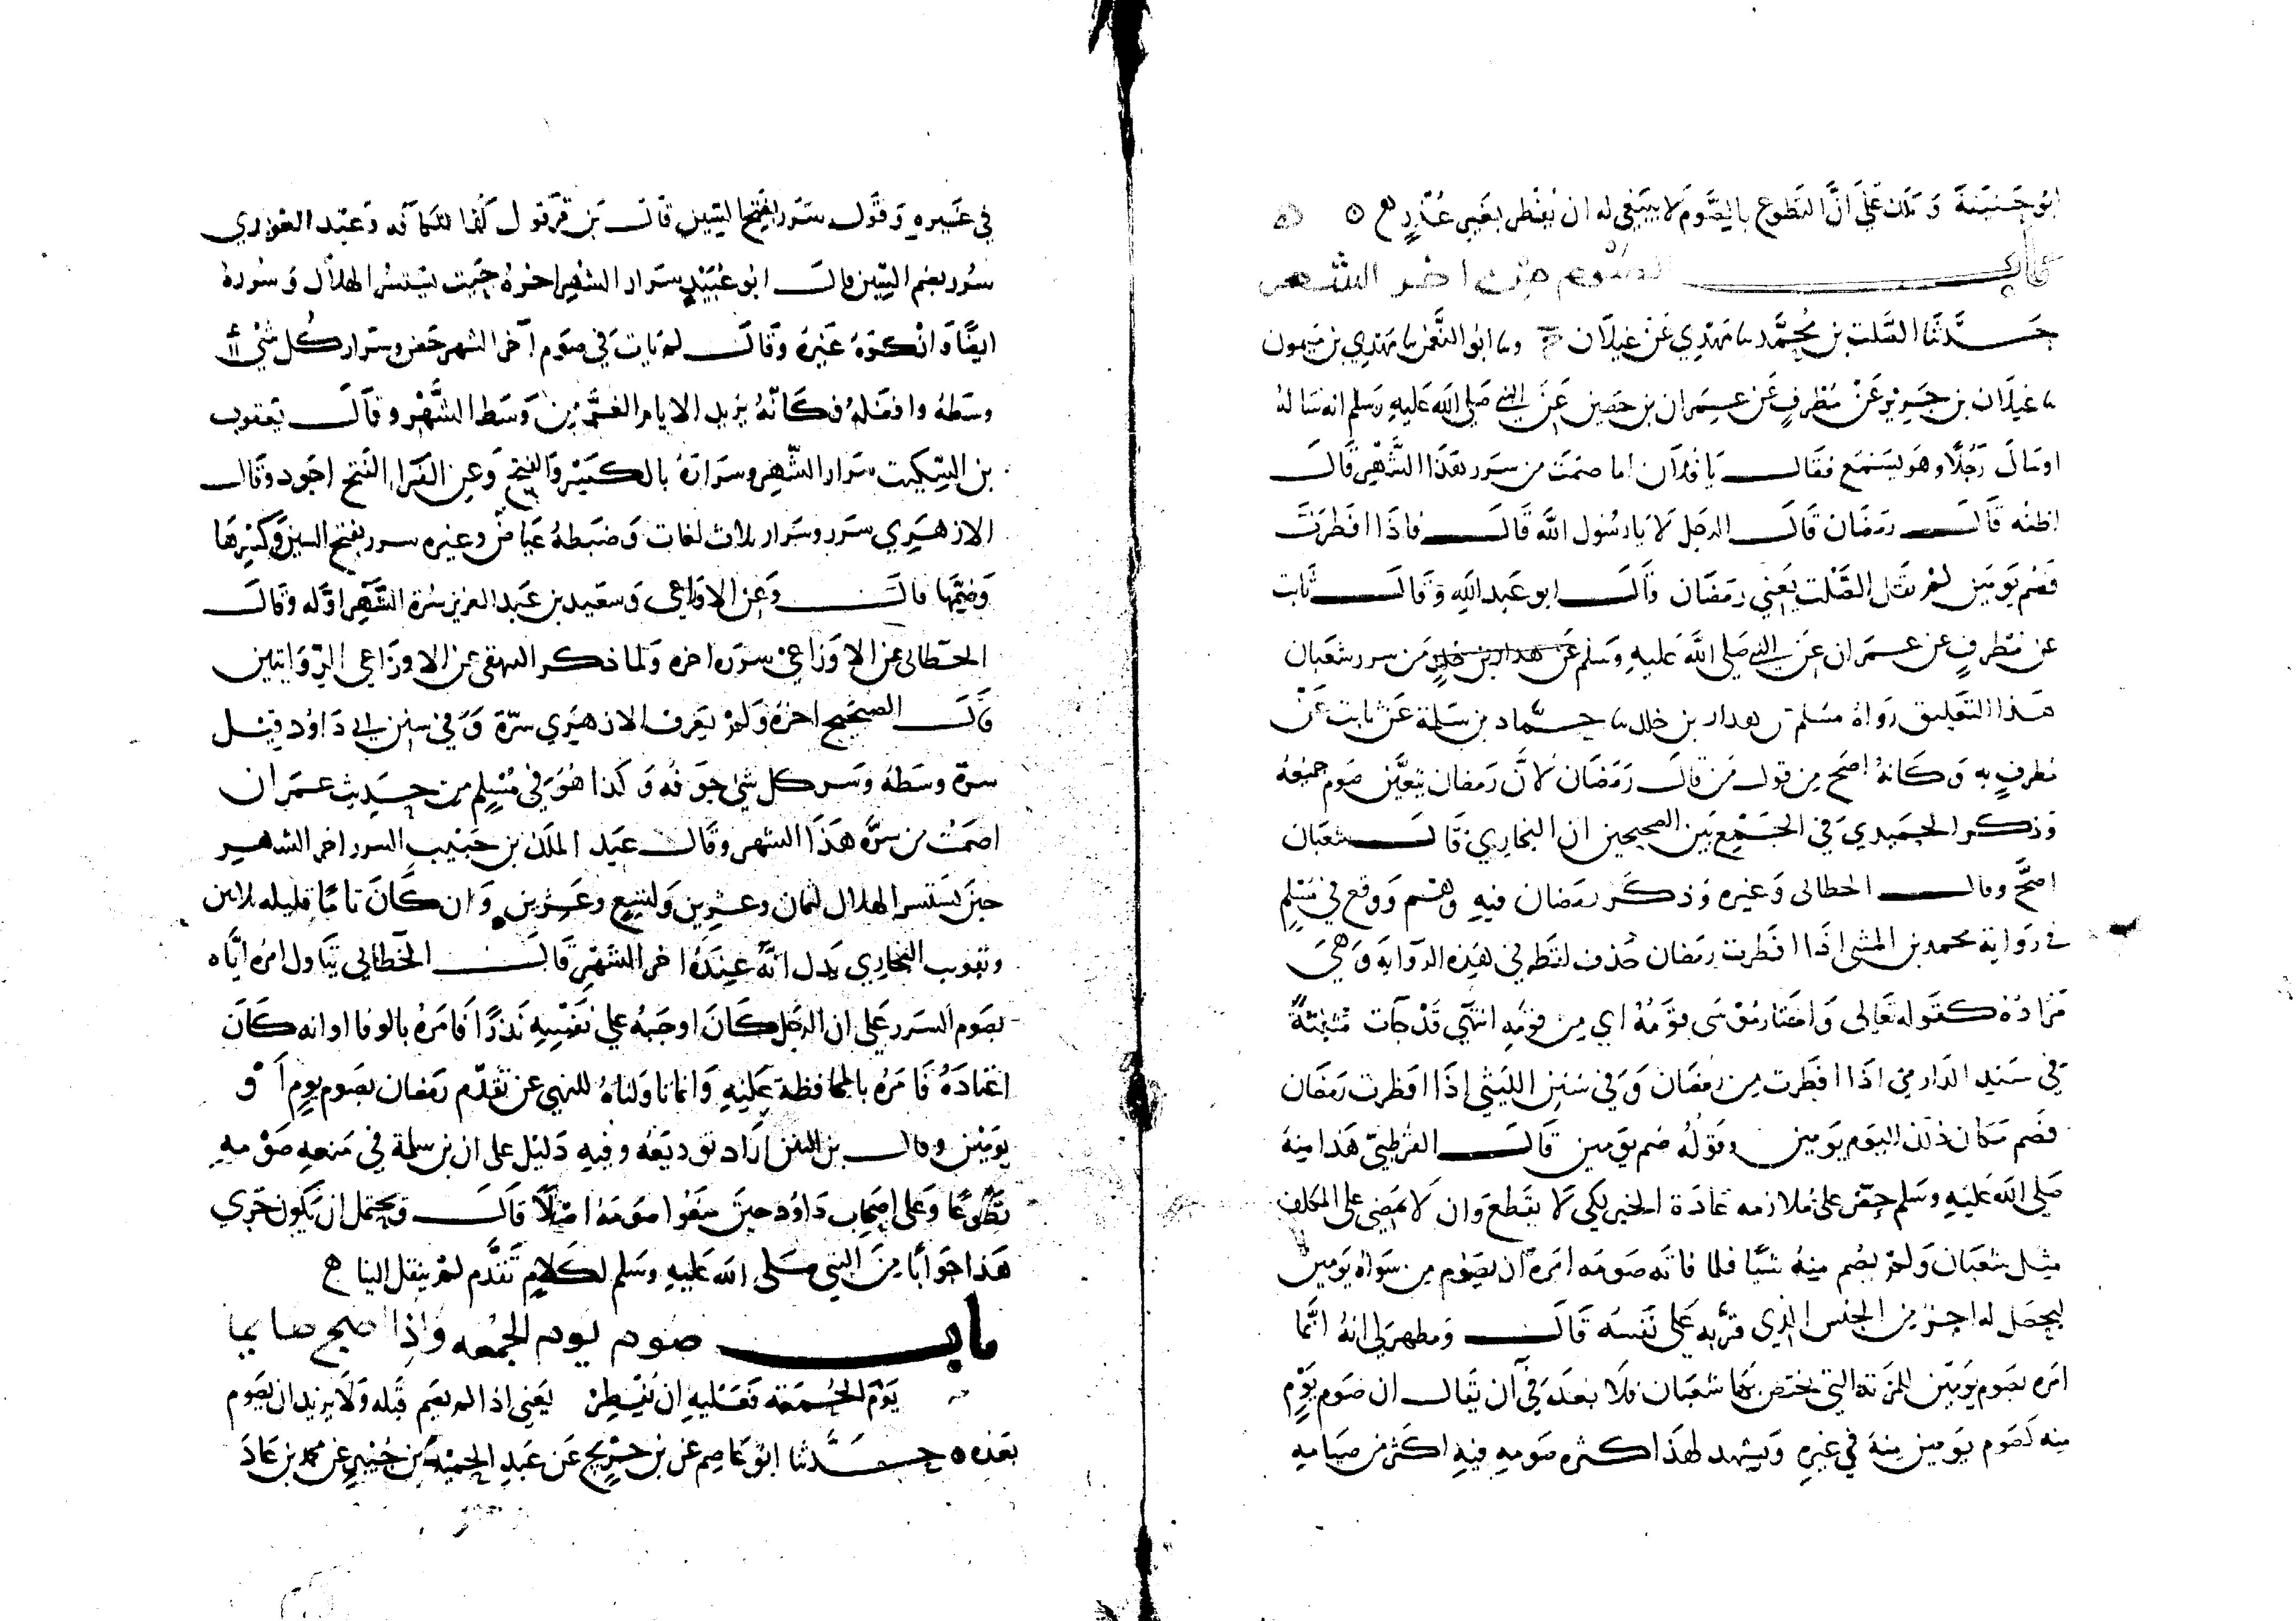 ابو حنيفة و مالك على ان التطوع بالصوم لا ينبغي له ان يفطر بغير عذر
باب الصوم من اخر الشهر
حدثنا الصلت بن محمد نا مهدي عن غيلان ح ونا ابو النعمن نا مهدي بن ميمون
نا غيلان بن جرير عن مطرف عن عمران بن حصين عن النبي صلى الله عليه وسلم انه ساله
او سال رجلا وهو يسمع فقال يا فلان اما صمت من سرر هذا الشهر قال
اظنه قال رمضان قال الرجل لا يا رسول الله قال فاذا افطرت
فصم يومين لم يقل الصلت يعني رمضان قال ابو عبد الله وقال ثابت
عن مطرف عن عمران عن النبي صلى الله عليه وسلم من سرر شعبان
هذا التعليق رواه مسلم عن هداب بن خالد نا حماد بن سلمة عن ثابت عن
مطرف به وكانه اصح من قول من قال رمضان لان رمضان يتعين صوم جميعه
وذكر الحميدي في الجمع بين الصحيحين ان البخاري قال شعبان
اصح وقال الخطابي وغيره وذكر رمضان فيه وهم ووقع في مسلم
في رواية محمد بن المثنى اذا افطرت رمضان حذف لفظ في هذه الرواية وهي
مرادة كقوله تعالى واختار موسى قومه اي من قومه انتهى قد جات مثبتة
في سند الدارمي اذا افطرت من رمضان وفي سنن الليثي اذا افطرت رمضان
فصم مكان ذلك اليوم يومين وقوله صم يومين قال القرطبي هذا منه
صلى الله عليه وسلم حض على ملازمه عادة الخير لكي لا تقطع وان لا يمضي على المكلف
مثل شعبان ولم يصم منه شيا فلما فاته صومه امره ان يصوم من سواه يومين
ليحصل له اجر من الجنس الذي فوته على نفسه قال ويظهر لي انه انما
امره بصوم يومين للمزية التي يختص بها شعبان فلا بعد في ان يقال ان صوم يوم
منه كصوم يومين منه في غيره ويشهد لهذا كثره صومه فيه اكثر من صيامه
في غيره وقوله سرر بفتح السين قال بن قرقول كذا للكافه وعند العذري
سرر بضم السين قال ابو عبيد سرار الشهر اخره حيث يستسر الهلال وسرره
ايضا وانكره غيره وقال لم يات في صوم آخر الشهر حض وسرار كل شي
وسطه وافضله فكانه يريد الايام الغر من وسط الشهر وقال يعقوب
بن السكيت سرار الشهر وسراره بالكسر والفتح وعن الفرا الفتح اجود وقال
الازهري سرر وسرار ثلاث لغات وضبطه عياض وغيره سرر بفتح السين وكسرها
وضمها قال وعن الاوزاعي وسعيد بن عبد العزيز سرة الشهر اوله وقال
الخطابي عن الاوزاعي سرره اخره ولما ذكر البيهقي عن الاوزاعي الروايتين
قال الصحيح اخره ولم يعرف الازهري سرة وفي سنن ابي داود قيل
سرة وسطه وسر كل شي جوفه وكذا هو في مسلم من حديث عمران
اصمت من سرة هذا الشهر وقال عبد الملك بن حبيب السرر اخر الشهر
حين يستسر الهلال لثمان وعشرين ولتسع وعشرين وان كان تاما فليله ثلاثين
وتبويب البخاري يدل انه عنده اخر الشهر قال الخطابي يتاول امره اياه
بصوم السرر على ان الرجل كان اوجبه على نفسه نذرا فامره بالوفا او انه كان
اعتاده فامره بالمحافظة عليه وانما تاولناه للنهي عن تقدم رمضان بصوم يوم او
يومين وقال بن التين اراد توديعه وفيه دليل على ان بن سلمة في منعه صومه
تطوعا وعلى اصحاب داود حين منعوا صومه اصلا قال ويحتمل ان يكون جرى
هذا جوابا من النبي صلى الله عليه وسلم لكلام تقدم لم ينقل الينا
باب صوم يوم الجمعه واذا اصبح صايما
يوم الجمعة فعليه ان يفطر يعني اذا لم يصم قبله ولا يريد ان يصوم
بعده حدثنا ابو عاصم عن بن جريج عن عبد الحميد بن جبير عن محمد بن عباد